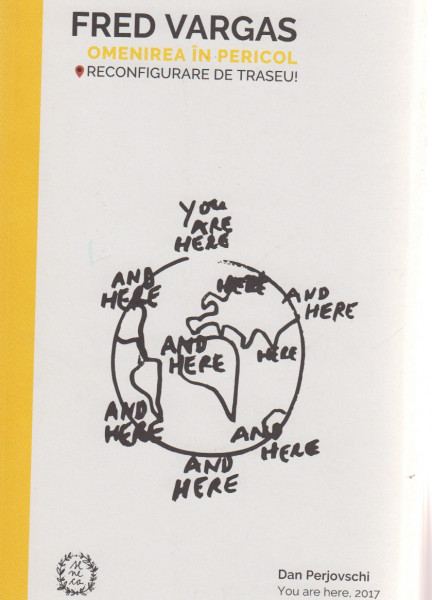 FRED VARGAS
OMENIREA ÎN PERICOL
RECONFIGURARE DE TRASEU!
YOU
ARE
HERE
AND
HERE
HERE
AND
HERE
AND
HERE
HERE
AND
HERE
AND
HERE
AND
HERE
SE
NE
CA
Dan Perjovschi
You are here, 2017